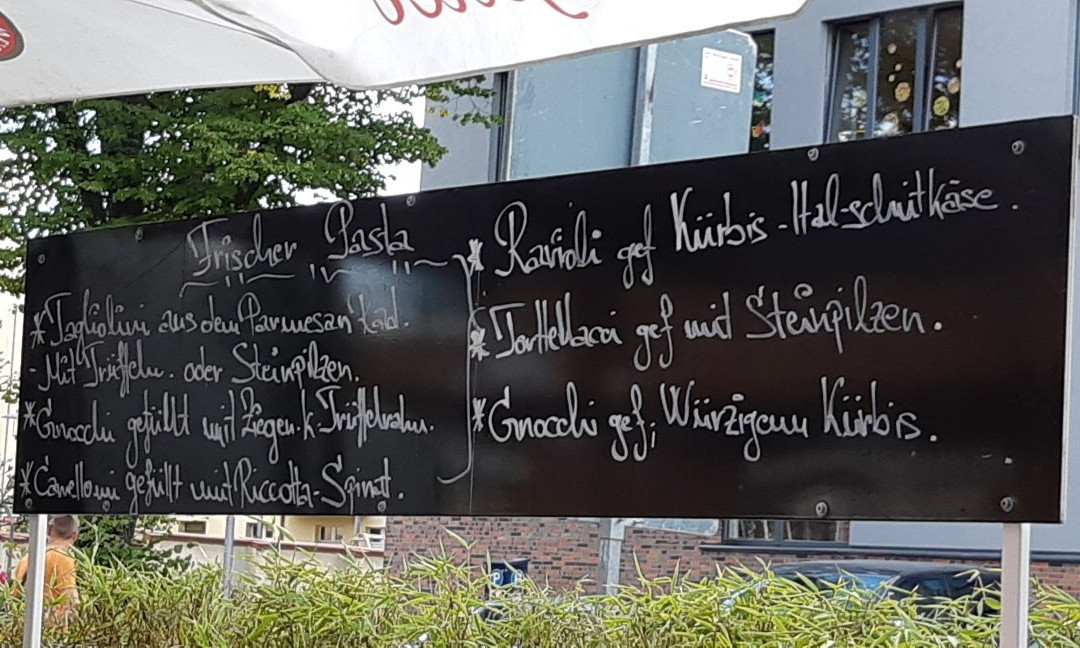 Frischer Pasta
* Tagliolini aus dem Parmesan Rad.
- Mit Trüffeln. oder Steinpilzen.
* Gnocchi gefüllt mit Ziegen.k-Trüffelrahm.
* Canelloni gefüllt mit Riccotta-Spinat.
* Ravioli gef Kürbis-Hal-schnitkäse.
* Tortellacci gef mit Steinpilzen.
* Gnocchi gef; Würzigem Kürbis.